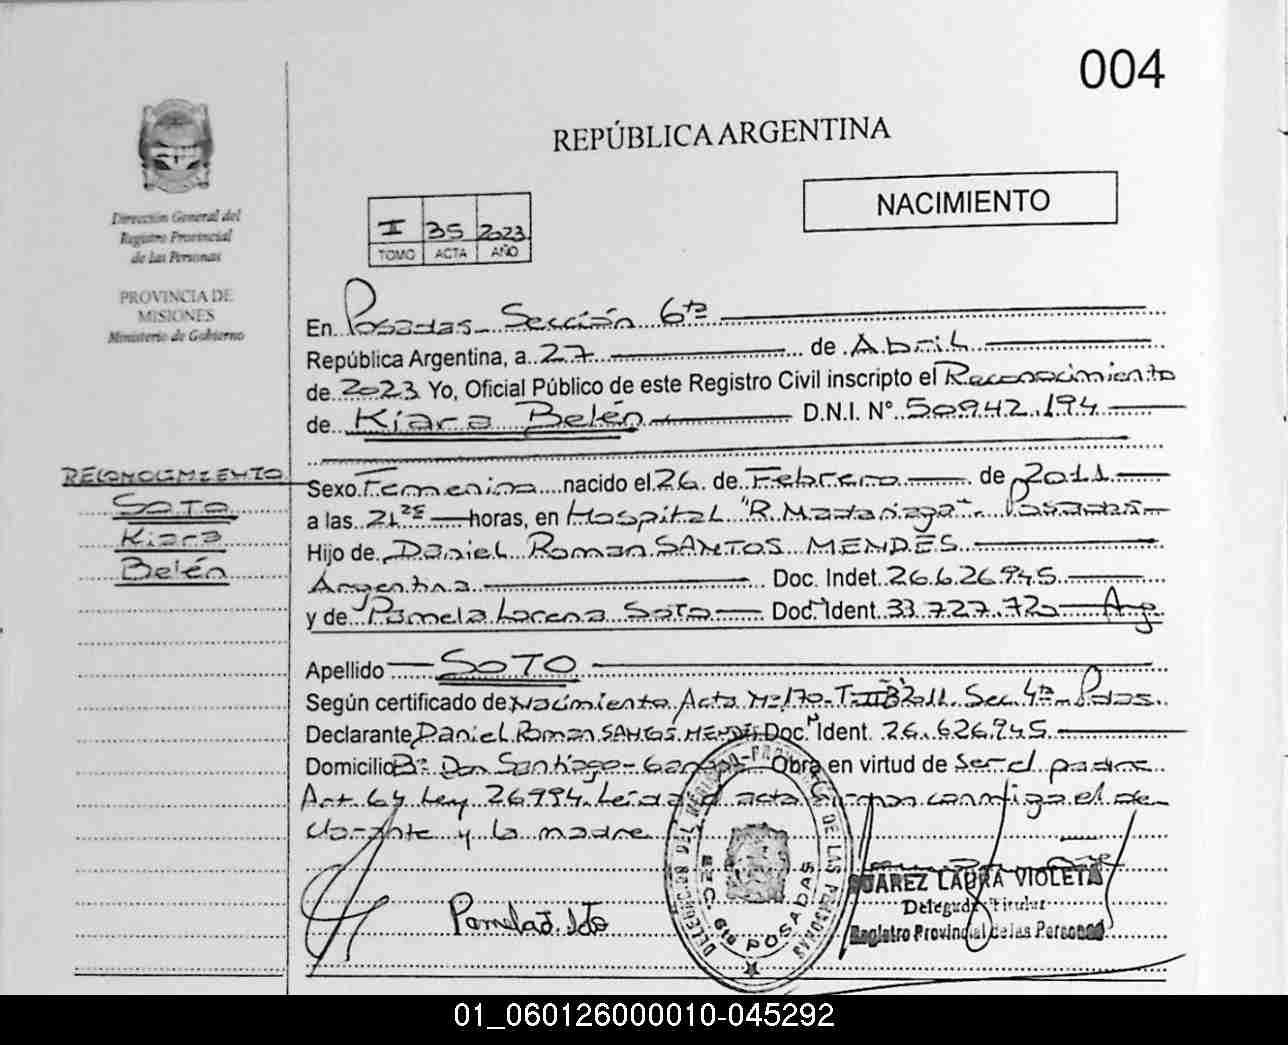 004
REPÚBLICA ARGENTINA
NACIMIENTO
Dirección General del
Registro Provincial
de las Personas
PROVINCIA DE
MISIONES
Ministerio de Gobierno
II 35 2023
TOMO ACTA AÑO
En Posadas Sección 6ta
República Argentina, a 27 de Abril
de 2023 Yo, Oficial Público de este Registro Civil inscripto el Reconocimiento
de Kiara Belén D.N.I. N° 50.942.194
RECONOCIMIENTO
SOTO
Kiara
Belén
Sexo Femenina nacido el 26 de Febrero de 2011
a las 21 horas, en Hospital "R. Madariaga" - Posadas
Hijo de Daniel Roman SANTOS MENDES
Argentina Doc. Indet. 26.626.945
y de Pamela Lorena Soto Doc. Ident. 33.727.720 Arg.
Apellido SOTO
Según certificado de Nacimiento Acta N° 170 - T. 2011 Sec. 4ta - Pdas.
Declarante Daniel Roman SANTOS MENDES Doc. Ident. 26.626.945
Domicilio B° Don Santiago - Obra en virtud de ser el padre
Art. 64 Ley 26994. Leída el acta firman conmigo el de-
clarante y la madre
Pamela Soto
DELEGACION DEL REGISTRO PROVINCIAL DE LAS PERSONAS
6ta POSADAS
SUAREZ LAURA VIOLETA
Delegada Titular
Registro Provincial de las Personas
01_060126000010-045292